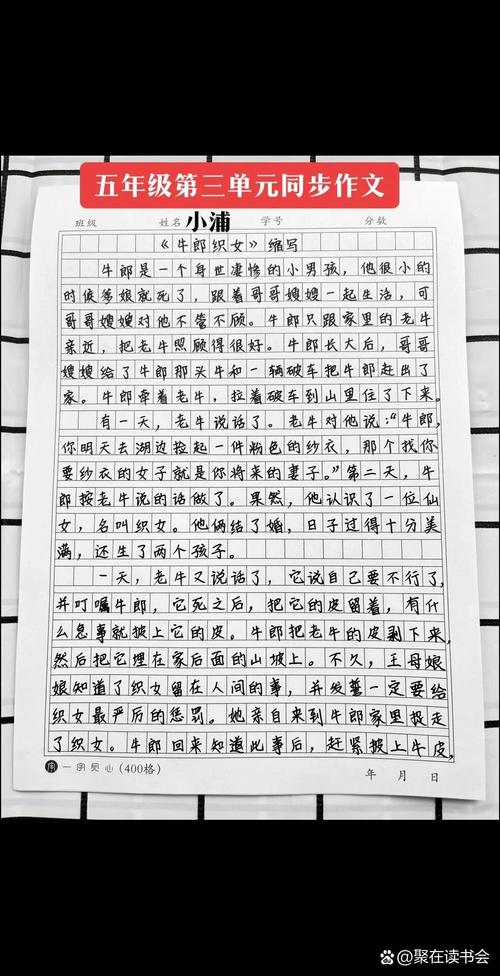 五年级第三单元同步作文
班级 姓名 小浦 学号 分数
《牛郎织女》缩写
牛郎是一个身世凄惨的小男孩，他很小的
时候爹娘就死了，跟着哥哥嫂嫂一起生活，可
哥哥嫂嫂对他不管不顾。牛郎只跟家里的老牛
亲近，把老牛照顾得很好。牛郎长大后，哥哥
嫂嫂给了牛郎那头牛和一辆破车把牛郎赶出了
家。牛郎牵着老牛，拉着破车到山里住了下来。
有一天，老牛说话了。老牛对他说：“牛郎，
你明天去湖边捡起一件粉色的纱衣，那个找你
要纱衣的女子就是你将来的妻子。”第二天，牛
郎按老牛说的话做了。果然，他认识了一位仙
女，名叫织女。他俩结了婚，日子过得十分美
满，还生了两个孩子。
一天，老牛又说话了，它说自己要不行了，
并叮嘱牛郎，它死之后，把它的皮留着，有什
么急事就披上它的皮。牛郎把老牛的皮剥下来，
然后把它埋在家后面的山坡上。不久，王母娘
娘知道了织女留在人间的事，并发誓一定要给
织女最严厉的惩罚。她亲自来到牛郎家里拽走
了织女。牛郎回来知道此事后，赶紧披上牛皮，
(400格) 年 月 日
聚在读书会